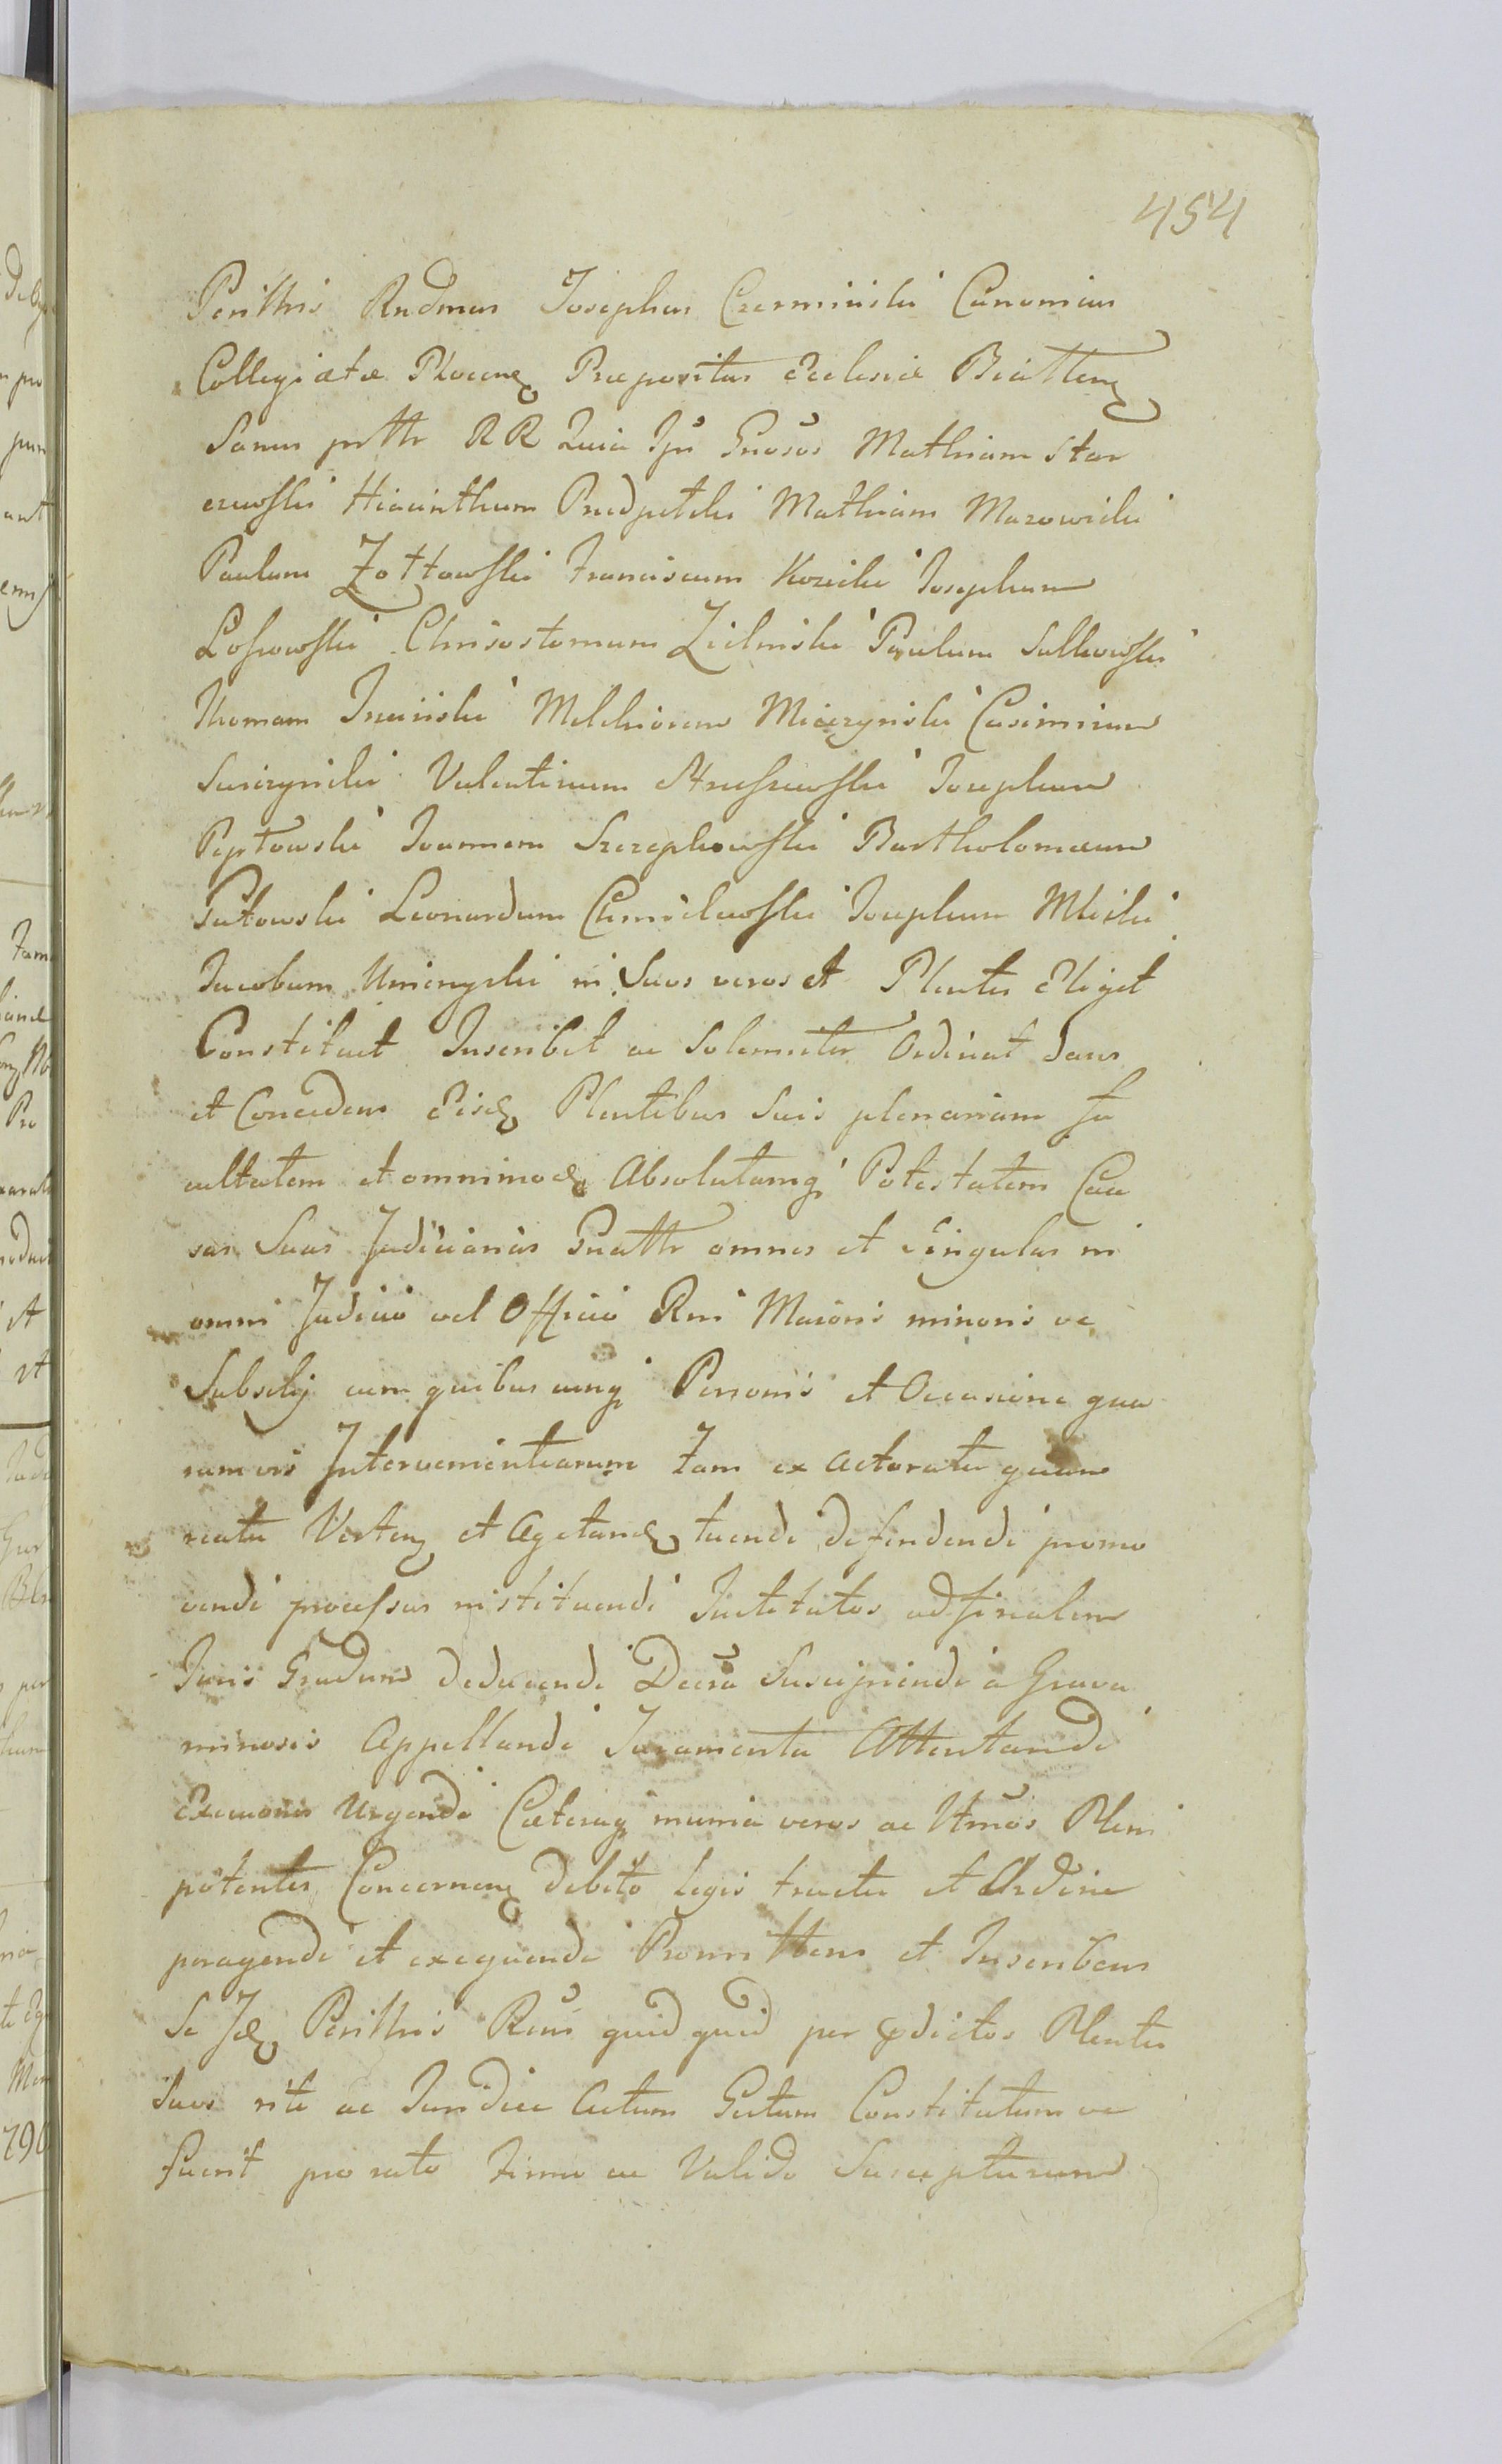 454
Perillris Rndmus Josephus Czerminski Canonicus
Collegiatæ Plocens Præpositus Ecclesiæ
Sanus prtte RR Quia Ipse Gnosos Mathiam Star
czewski Hiacinthum Podpetski Mathiam Mazowiecki
Paulum Żottowski Franciscum Kozicki Josephum
Lossowski Chrisostomum Zielinski Paulum Sulkowski
Thomam Melchiorem Miączynski Casimirum
Valentinum Josephum
Ioannem Szczepkowski Bartholomæum
Gutowski Leonardum Chmielewski Josephum Mlicki
Jacobum Umienyski in Suos veros et Plentes Eliget
Constituet Inscribit ac Solemniter Ordinat Dans
et Concedens Eisd Plentibus Suis plenariam fa
cultatem et omnimod Absolutamq Potestatem Cau
sas Suas Judiciarias Gnattr omnes et Singulas in
omni Judicio vel Officio Rni Maioris minoris ve
Subselij cum quibus cunq Personis et Occasione qua
rumvis Intervenientiarum Tam ex Actoratu quam
reatu Verten et Agitand tuendi defendendi promo
vendi processus instituendi Institutos ad finalem
Juris Gradum deducendi Decra Suscipiendi a Grava
minosis Appellandi Juramenta Attentandi
Exeuones Urgendi Cæteraq munia veros ac Ltmos Pleni
potentes Concernen debito legis tractu et Ordine
peragendi et exequendi Promittens et Inscribens
Se Id Perillris Rnus quid quid per prdictos Plentes
Suos rite ac Juridice Actum Gestum Constitutum ve
fuerit pro rato firmo ac Valido Suscepturum